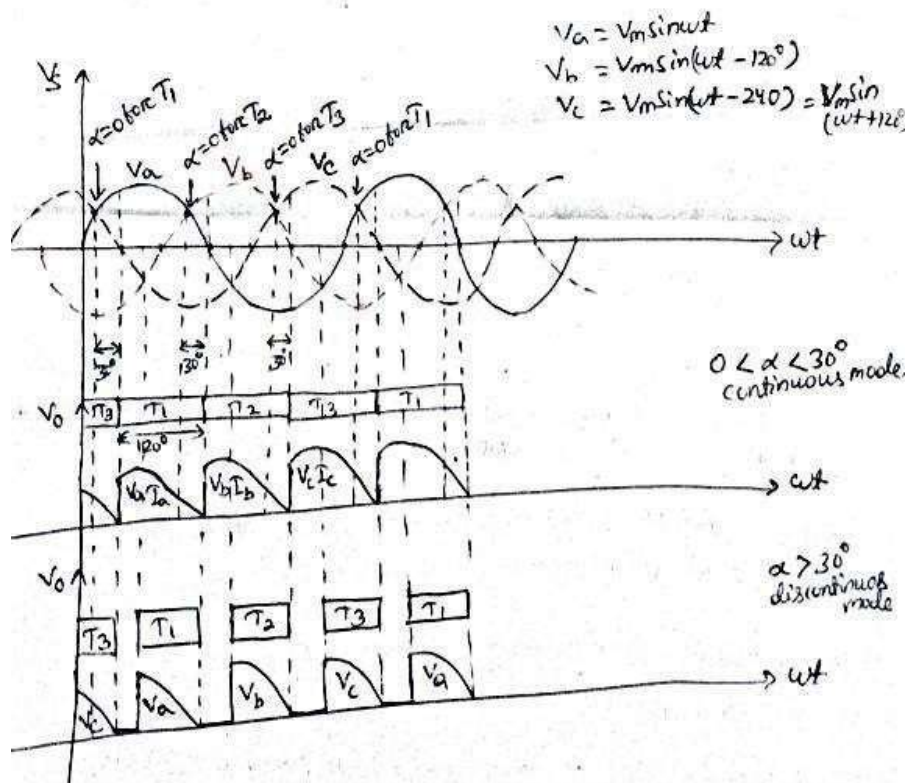 Va = Vmsinωt
Vb = Vmsin(ωt - 120°)
Vc = Vmsin(ωt - 240) = Vmsin
(ωt + 120°)
Vs
α=0 for T1
α=0 for T2
α=0 for T3
α=0 for T1
Va
Vb
Vc
ωt
30°
30°
30°
0 < α < 30°
continuous mode.
V0
T3 T1 T2 T3 T1
120°
VaIa VbIb VcIc
ωt
α > 30°
V0
mode
T3 T1 T2 T3 T1
Vc Va Vb Vc Va
ωt